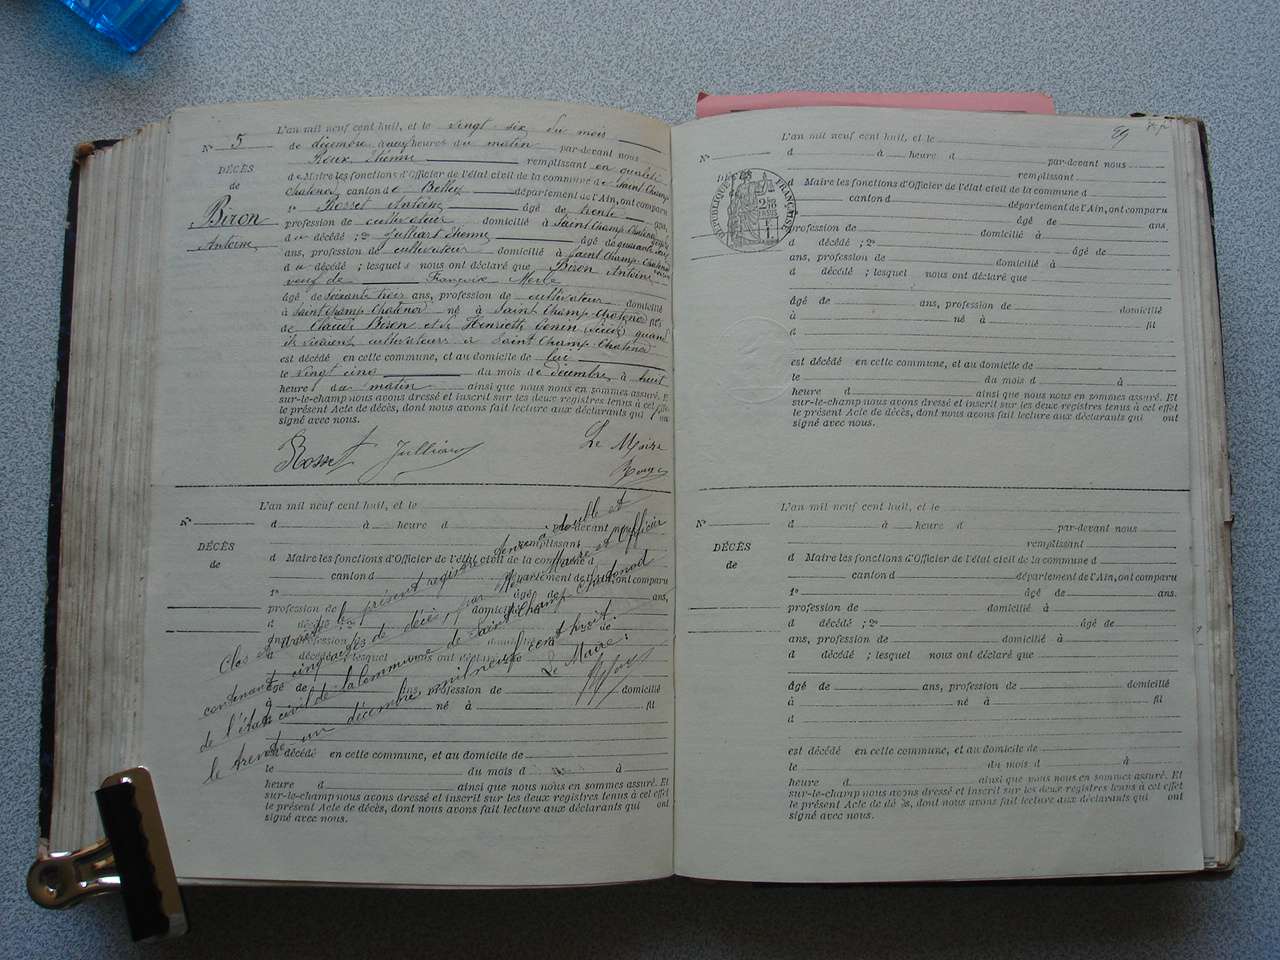 N° 5
DÉCÈS
de
Biron
Antoine
L'an mil neuf cent huit, et le vingt six du mois
de décembre à heures du matin par-devant nous
Roux Etienne remplissant en qualité
de Maire les fonctions d'Officier de l'état civil de la commune de Saint Champ
Chatonod, canton de Belley département de l'Ain, ont comparu
1° Rosset Antoine âgé de trente ans,
profession de cultivateur domicilié à Saint Champ Chatonod
d u décédé ; 2° Julliard Etienne âgé de quarante
ans, profession de cultivateur domicilié à Saint Champ Chatonod
d u décédé ; lesquels nous ont déclaré que Biron Antoine
veuf de Françoise Merle
âgé de soixante trois ans, profession de cultivateur domicilié
à Saint Champ Chatonod né à Saint Champ Chatonod fils
de Claude Biron et de Henriette Genin quand
ils vivaient cultivateurs à Saint Champ Chatonod
est décédé en cette commune, et au domicile de lui
le vingt cinq du mois de décembre à huit
heures du matin ainsi que nous nous en sommes assuré. Et
sur-le-champ nous avons dressé et inscrit sur les deux registres tenus à cet effet
le présent Acte de décès, dont nous avons fait lecture aux déclarants qui ont
signé avec nous.
Rosset Julliard Le Maire
Roux
N°
DÉCÈS
de
L'an mil neuf cent huit, et le
d à heure d par-devant nous
remplissant
d Maire les fonctions d'Officier de l'état civil de la commune d
canton d département de l'Ain, ont comparu
1° âgé de ans,
profession de domicilié à
d décédé ; 2° âgé de
ans, profession de domicilié à
d décédé ; lesquel nous ont déclaré que
âgé de ans, profession de domicilié
à né à fil
d
est décédé en cette commune, et au domicile de
le du mois d à
heure d ainsi que nous nous en sommes assuré. Et
sur-le-champ nous avons dressé et inscrit sur les deux registres tenus à cet effet
le présent Acte de décès, dont nous avons fait lecture aux déclarants qui ont
signé avec nous.
Clos et arrêté le présent registre tenu à double et
contenant cinq actes de décès, par Nous Maire et Officier
de l'état civil de la commune de Saint Champ Chatonod
le trente un décembre mil neuf cent huit.
Le Maire:
RÉPUBLIQUE FRANÇAISE
N°
DÉCÈS
L'an mil neuf cent huit, et le
d à heure d par-devant nous
remplissant
d Maire les fonctions d'Officier de l'état civil de la commune d
canton d département de l'Ain, ont comparu
âgé de ans,
profession de domicilié à
d décédé ; 2° âgé de
ans, profession de domicilié à
d décédé ; lesquel nous ont déclaré que
âgé de ans, profession de domicilié
à né à fil
d
est décédé en cette commune, et au domicile de
le du mois d à
heure d ainsi que nous nous en sommes assuré. Et
sur-le-champ nous avons dressé et inscrit sur les deux registres tenus à cet effet
le présent Acte de décès, dont nous avons fait lecture aux déclarants qui ont
signé avec nous.
N°
DÉCÈS
de
L'an mil neuf cent huit, et le
d à heure d par-devant nous
remplissant
d Maire les fonctions d'Officier de l'état civil de la commune d
canton d département de l'Ain, ont comparu
1° âgé de ans.
profession de domicilié à
d décédé ; 2° âgé de
ans, profession de domicilié à
d décédé ; lesquel nous ont déclaré que
âgé de ans, profession de domicilié
à né à fil
d
est décédé en cette commune, et au domicile de
le du mois d à
heure d ainsi que nous nous en sommes assuré. Et
sur-le-champ nous avons dressé et inscrit sur les deux registres tenus à cet effet
le présent Acte de décès, dont nous avons fait lecture aux déclarants qui ont
signé avec nous.